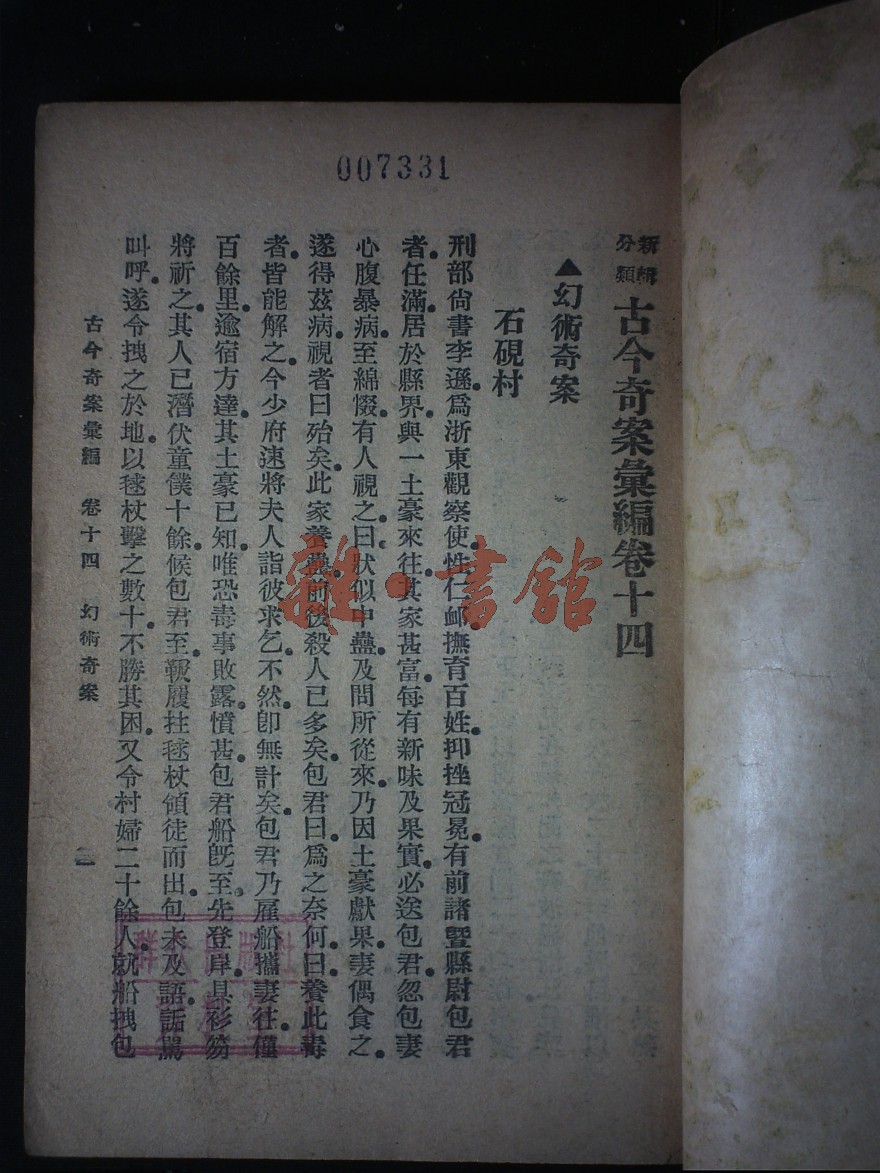 007331
新輯分類 古今奇案彙編卷十四
▲幻術奇案
石硯村
刑部尙書李遜。爲浙東觀察使。性仁卹。撫育百姓。抑挫冠冕。有前諸暨縣尉包君
者。任滿。居於縣界。與一土豪來往。其家甚富。每有新味及果實。必送包君。忽包妻
心腹暴病。至綿惙。有人視之。曰。狀似中蠱。及問所從來。乃因土豪獻果。妻偶食之。
遂得茲病。視者曰。殆矣。此家養蠱。前後殺人已多矣。包君曰。爲之奈何。曰。養此毒
者。皆能解之。今少府速將夫人詣彼求乞。不然。卽無計矣。包君乃雇船攜妻往。僅
百餘里。逾宿方達。其土豪已知。唯恐毒事敗露。憤甚。包君船旣至。先登岸。具衫笏
將祈之。其人已潛伏童僕十餘。候包君至。靸履拄毬杖。領徒而出。包未及語。詬罵
叫呼。遂令拽之於地。以毬杖擊之數十。不勝其困。又令村婦二十餘人。就船拽包
古今奇案彙編 卷十四 幻術奇案
雜·書館